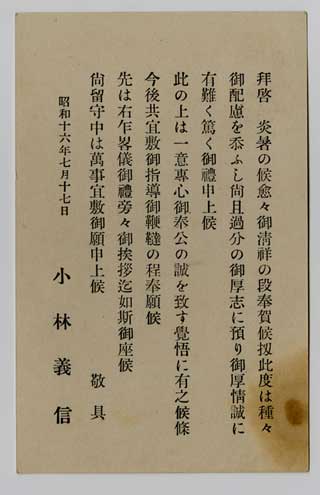 拜啓　炎暑の候愈々御淸祥の段奉賀候扨此度は種々
御配慮を忝ふし尙且過分の御厚志に預り御厚情誠に
有難く篤く御禮申上候
此の上は一意專心御奉公の誠を致す覺悟に有之候條
今後共宜敷御指導御鞭韃の程奉願候
先は右乍畧儀御禮旁々御挨拶迄如斯御座候
尙留守中は萬事宜敷御願申上候　敬具
昭和十六年七月十七日
小林義信